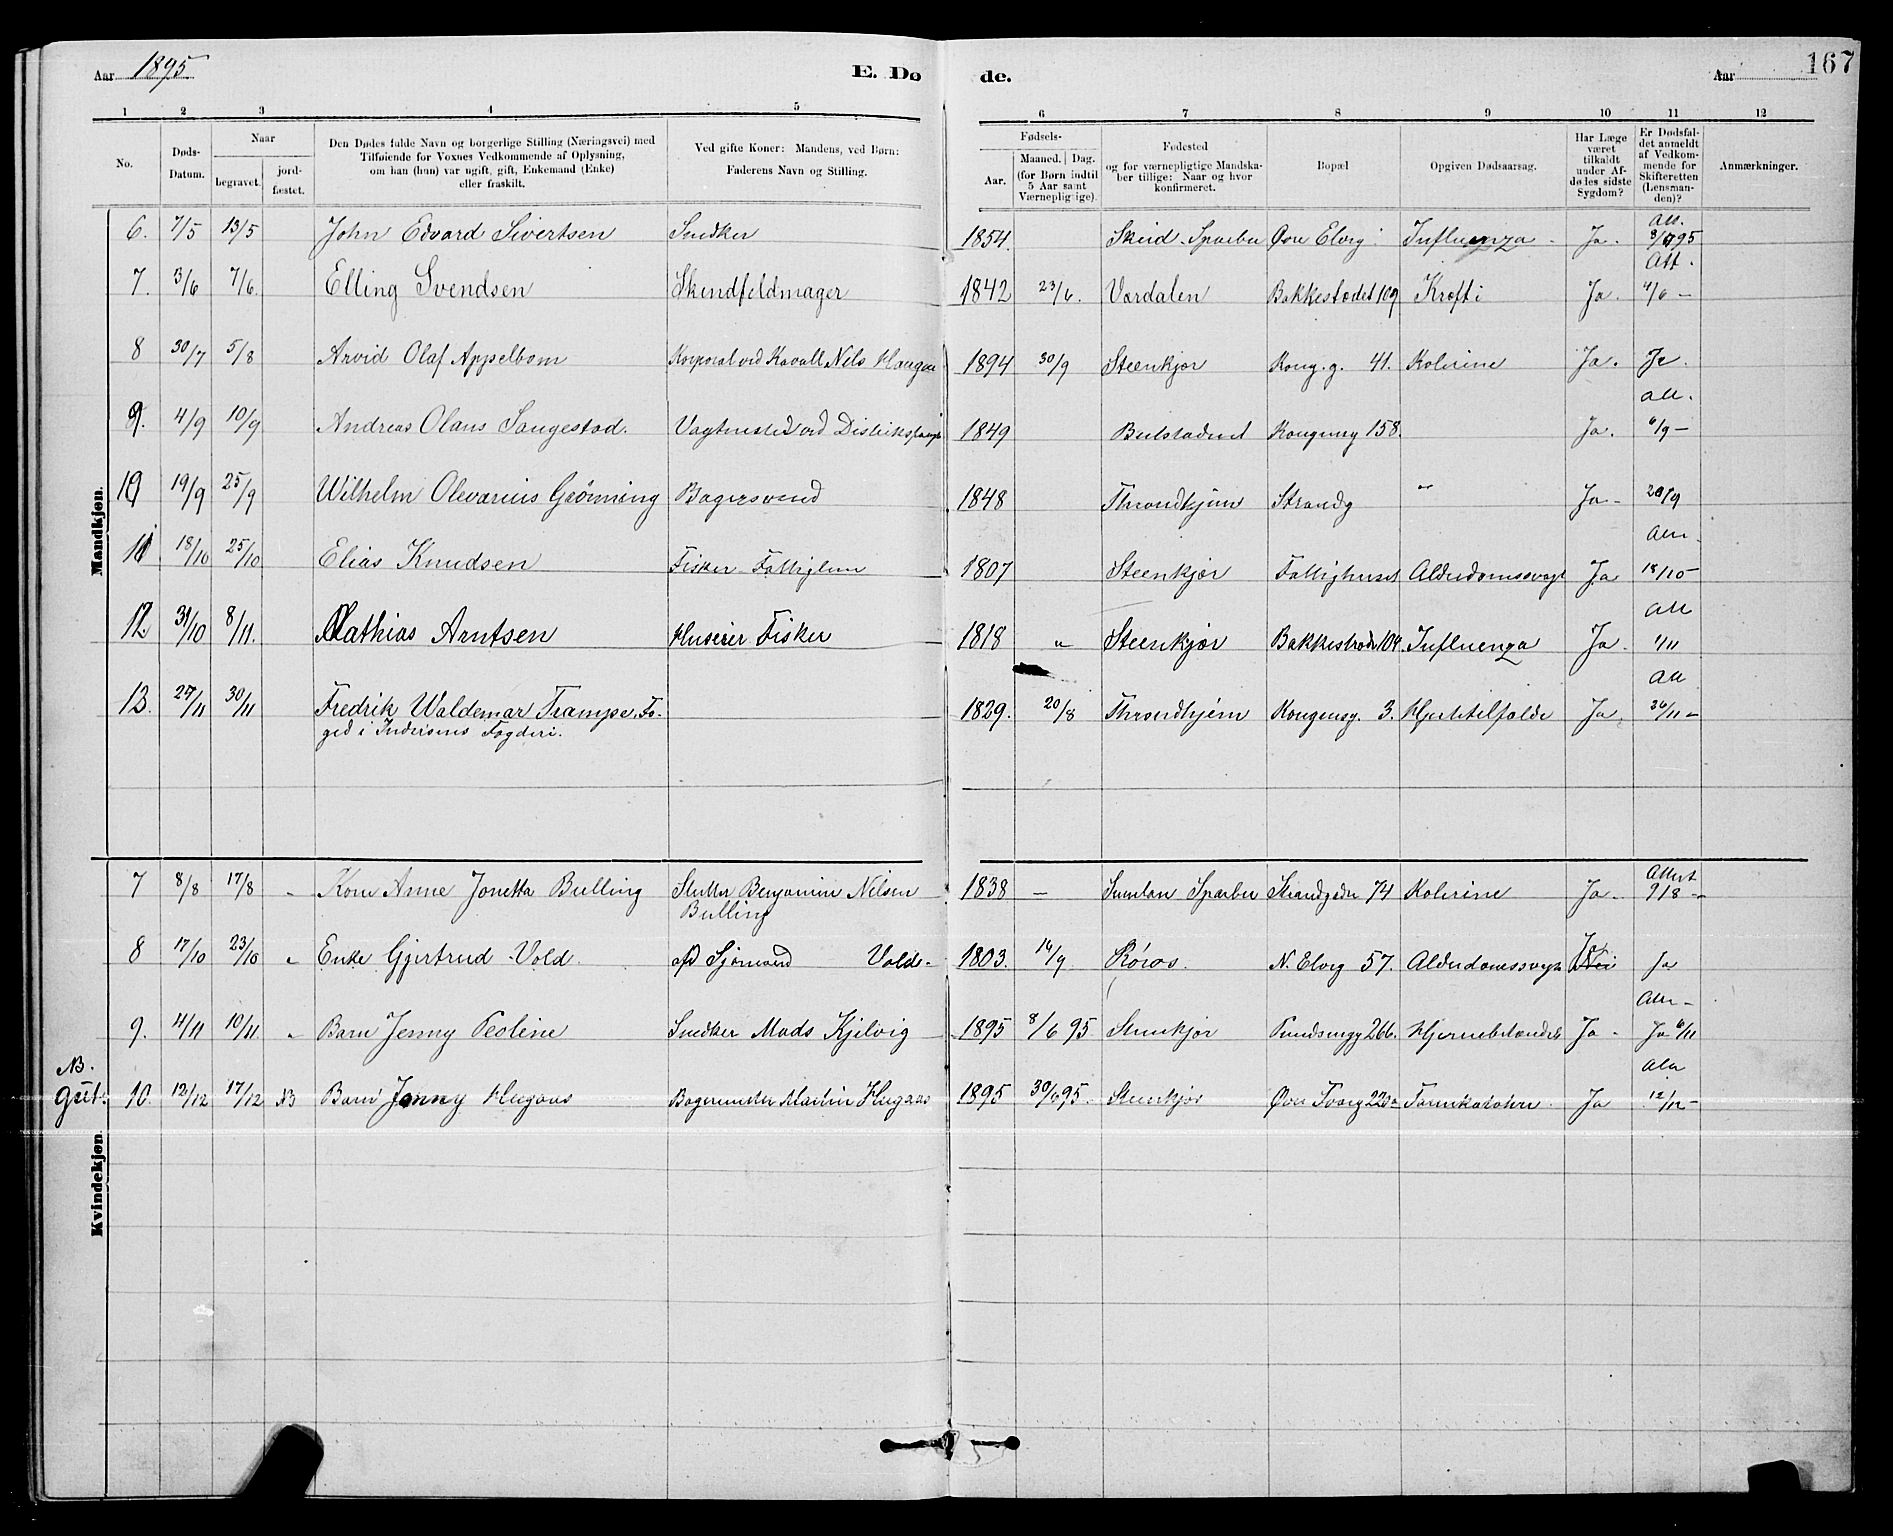 Aar 1895.
E. Dø
de.
Aar
167
1 2 3 4 5 6 7 8 9 10 11 12
No.
Døds-Datum.
Naar
begravet.
jord-fæstet.
Den Dødes fulde Navn og borgerlige Stilling (Næringsvei) med
Tilføiende for Voxnes Vedkommende af Oplysning,
om han (hun) var ugift, gift, Enkemand (Enke)
eller fraskilt.
Ved gifte Koner: Mandens, ved Børn:
Faderens Navn og Stilling.
Fødsels-
Aar.
Maaned. Dag.
(for Børn indtil
5 Aar samt
Værnepligtige).
Fødested
og for værnepligtige Mandska-
ber tillige: Naar og hvor
konfirmeret.
Bopæl
Opgiven Dødsaarsag.
Har Læge
været
tilkaldt
under Af-
dødes sidste
Sygdom?
Er Dødsfal-
det anmeldt
af Vedkom-
mende for
Skifteretten
(Lensman-
den)?
Anmærkninger.
Mandkjøn.
6. 7/5 13/5 John Edvard Sivertsen Snedker 1854. Skeid Sparbu Øvre Elvg Influenza Ja. 95
7. 3/6 7/6. Elling Svendsen Skindfeldmager 1842 23/6. Værdalen Bakkestrædet 109 Kræft i Ja. Att. 4/6 -
8 30/7 5/8 Arvid Olaf Appelbom Korporal ved Kavall. Nels Haugan 1894 30/9 Steenkjær Kong. g. 41. Kolerine Ja. Ja.
9. 4/9 10/9 Andreas Olaus Saugestad. 1849 Beitstadnet Kongensg 158. Ja. Att. 6/9 -
10 19/9 25/9 Wilhelm Olevarius Grønning Bagersvend 1848 Throndhjem Strandg " Ja - 20/9
11 18/10 25/10 Elias Knudsen Fisker Fattiglem 1807 Steenkjær Fattighuset Alderdomssvagh Ja Att. 18/10 -
12 31/10 8/11. Mathias Arntsen Huseier Fisker 1818 " Steenkjær Bakkestræde 104. Influenza Ja. Att
13. 27/11 30/11 Fredrik Waldemar Trampe, Fo- 1829. 20/8 Throndhjem Kongensg. 3. Hjertetilfælde Ja. Att
ged i Inderøens Fogderi.
Kvindekjøn.
7 8/8 17/8 " Kone Anne Jonetta Bulling Slutter Benjamin Nilsen 1838 - Sparbu Strandgaden 74 Kolerine Ja. Attest 9/8 -
Bulling
8 17/10 23/10 " Enke Gjertrud Vold Sjømand Vold - 1803. 14/9 Røros. N. Elvg 57. Alderdomssvagh Ja Nei Ja
9. 4/11 10/11. " Barn Jenny Peoline Snedker Mads Kjelvig 1895 8/6 95 Steenkjær 266. Hjernebetændelse Ja - Ja 6/11
NB.
Gut. 10. 12/12 17/12 NB Barn Jenny Hugaas Bagermester Martin Hugaas 1895 30/6 95. Steenkjær Øvre Torvg Tarmkatarhn Ja 12/12 -